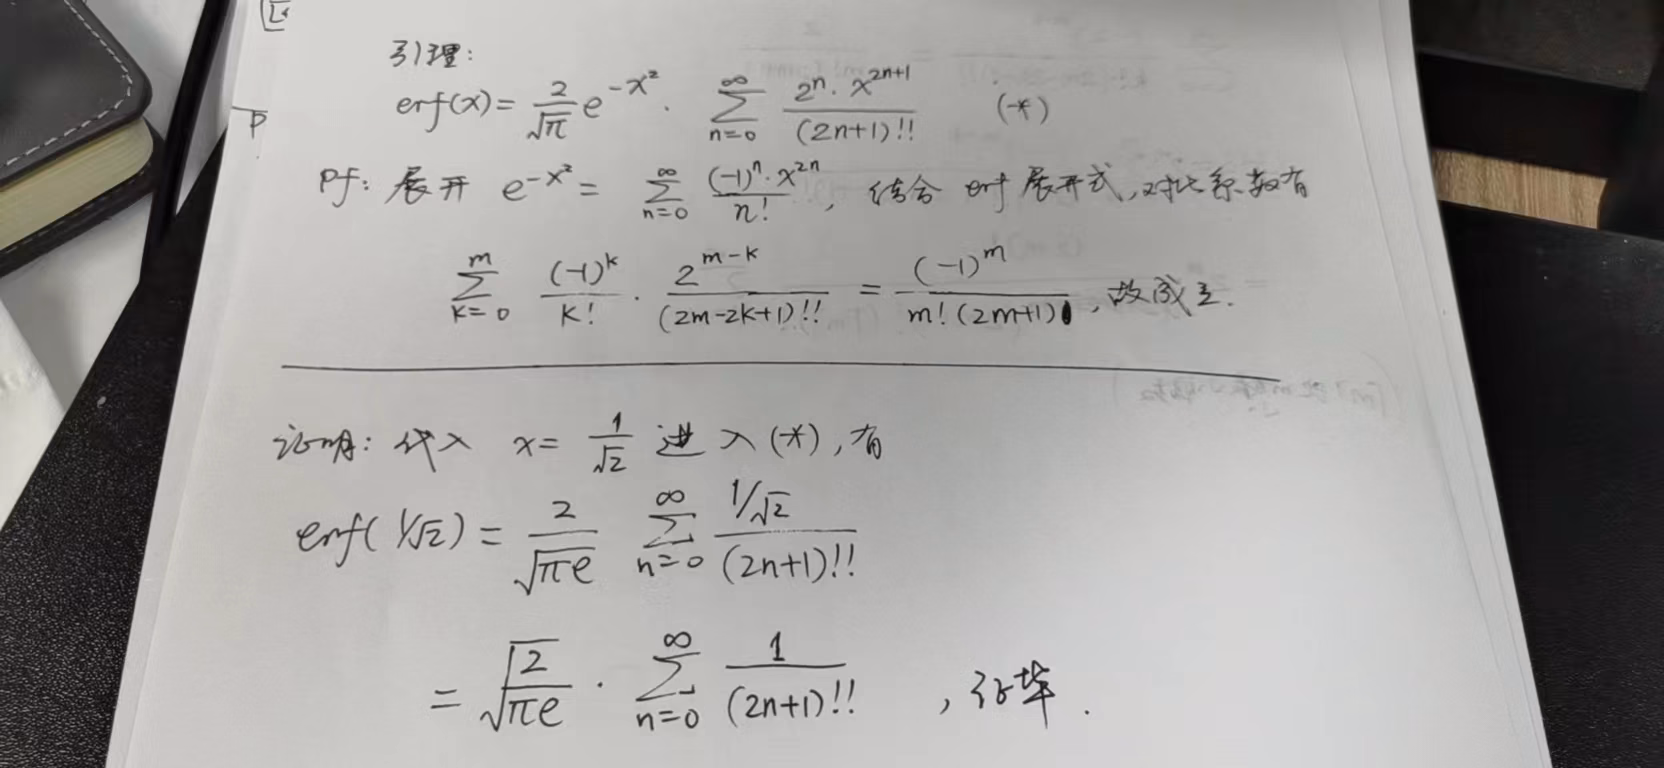 引理:
erf(x) = \frac{2}{\sqrt{π}} e^{-x^2} · \sum_{n=0}^{∞} \frac{2^n · x^{2n+1}}{(2n+1)!!} (*)
P
pf: 展开 e^{-x^2} = \sum_{n=0}^{∞} \frac{(-1)^n · x^{2n}}{n!}, 结合 erf 展开式, 对比系数有
\sum_{k=0}^{m} \frac{(-1)^k}{k!} · \frac{2^{m-k}}{(2m-2k+1)!!} = \frac{(-1)^m}{m!(2m+1)}, 故成立.
证明: 代入 x = \frac{1}{\sqrt{2}} 进入(*), 有
erf(1/\sqrt{2}) = \frac{2}{\sqrt{πe}} \sum_{n=0}^{∞} \frac{1/\sqrt{2}}{(2n+1)!!}
= \sqrt{\frac{2}{πe}} · \sum_{n=0}^{∞} \frac{1}{(2n+1)!!}, 证毕.